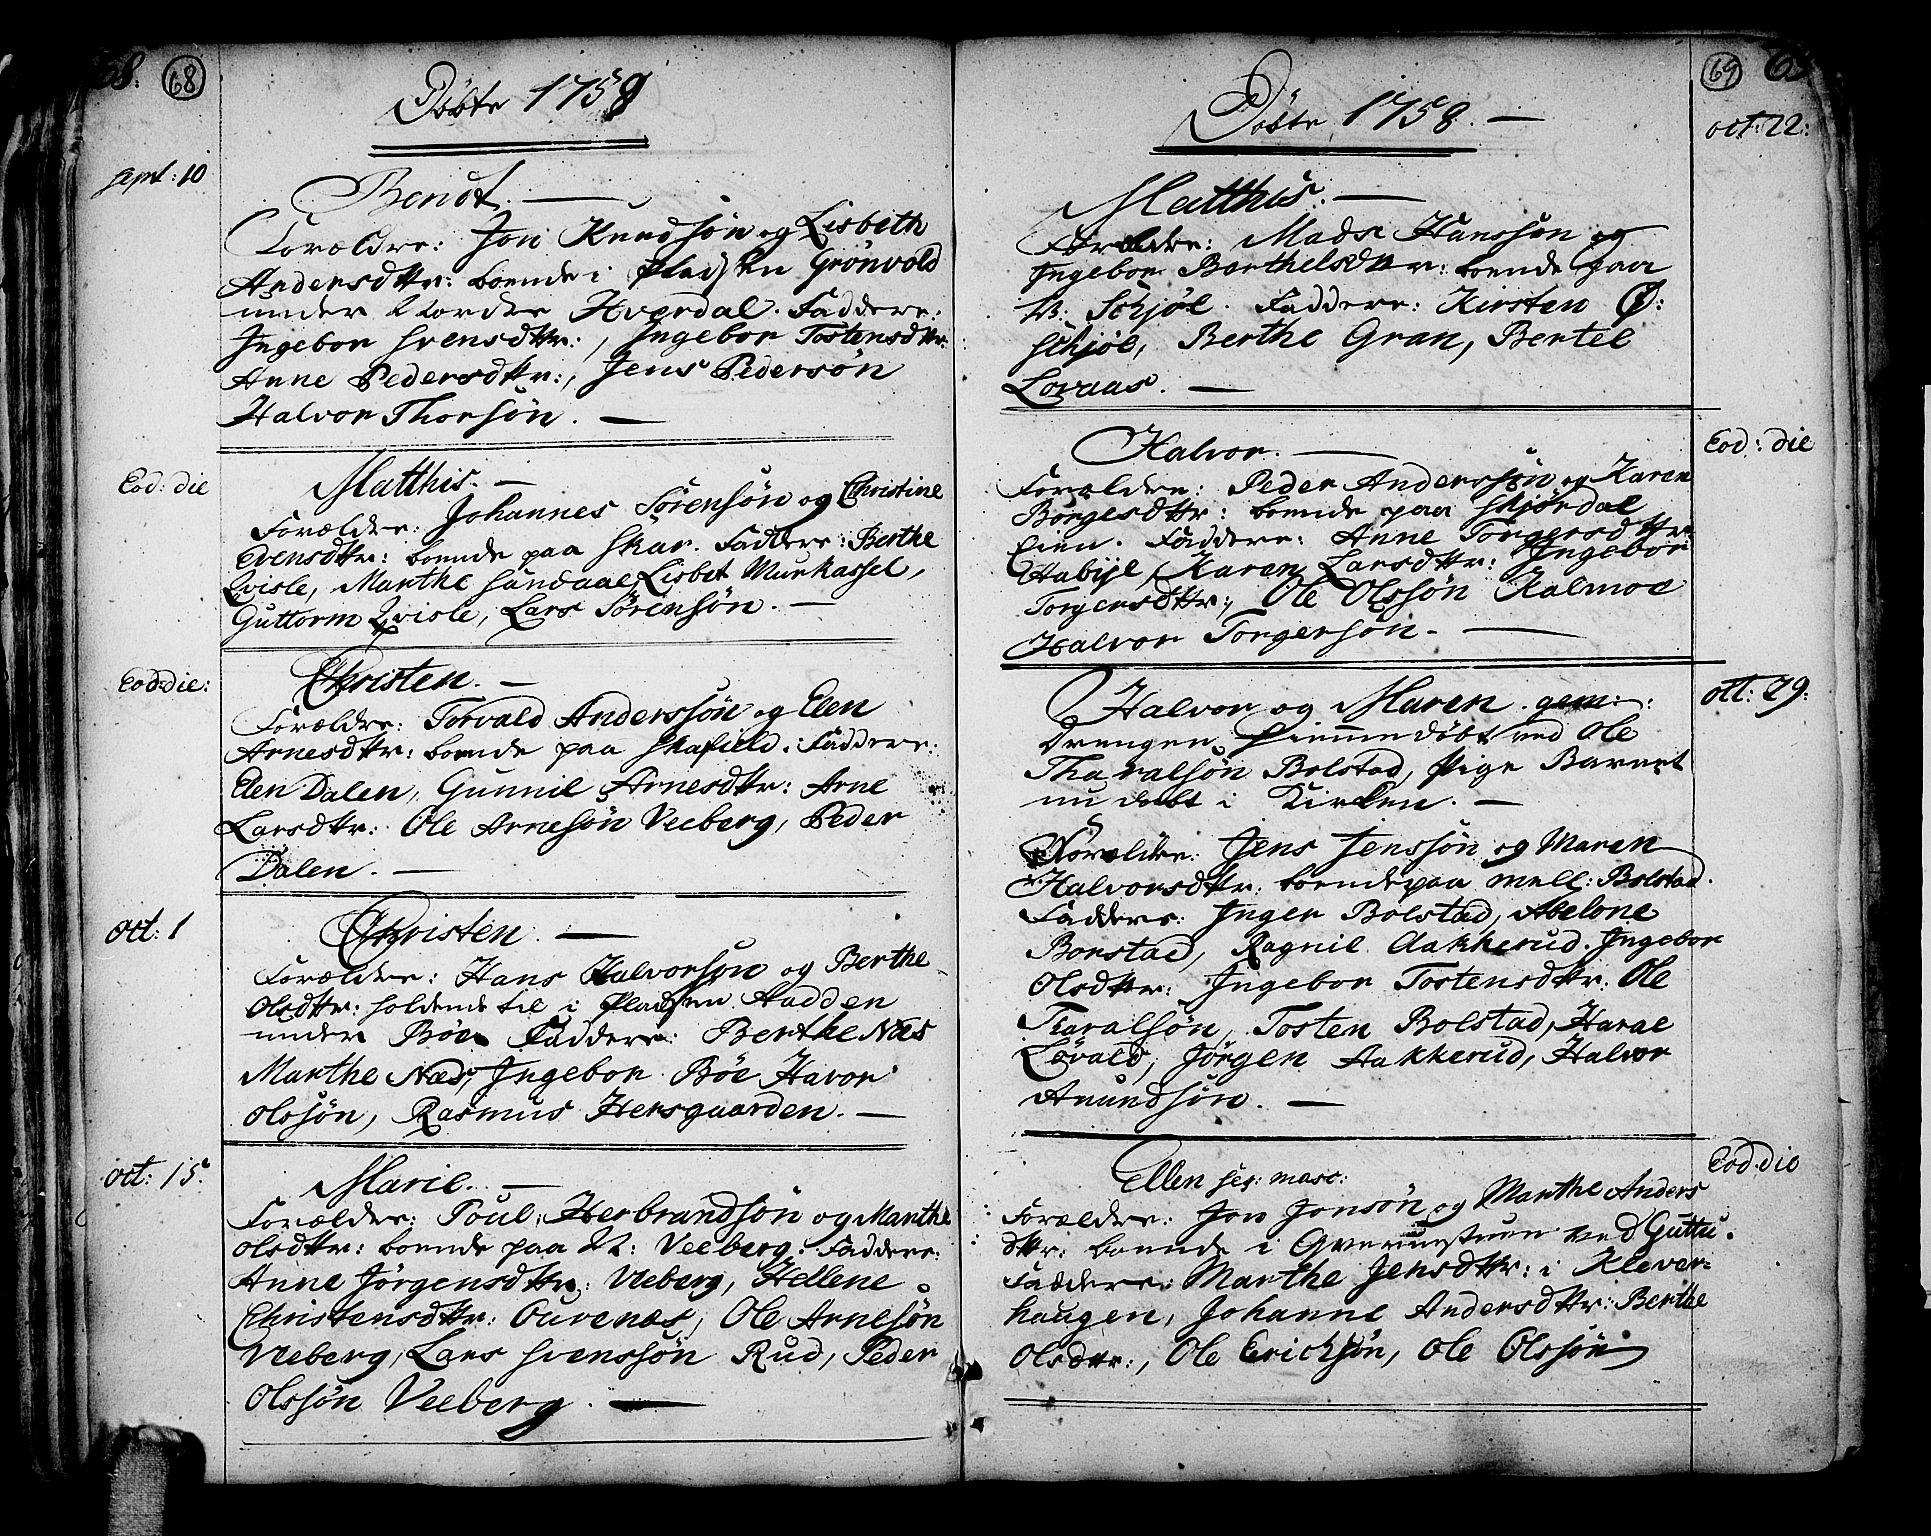 68. 68
Döbte 1758
sept: 10
Bendt.
Forældre: Jon Knudsøn og Lisbeth
Andersdttr: boende i Pladsen Grønvold
under Nordre Hverdal. Faddere:
Ingebor Svensdttr:, Ingebor Tostensdttr:
Anne Pedersdttr:, Jens Pedersøn
Halvor Thorsøn.
Eod: die
Matthis.
Forældre: Johannes Sørensøn og Christine
Evensdttr: boende paa Skar. Faddere: Berthe
Qvisle, Marthe Sandaae, Lisbet Murkassel,
Guttorm Qvisle, Lars Sørensøn.
Eod: die:
Christen.
Forældre: Torvald Anderssøn og Elen
Arnesdttr: boende paa Skafield. Faddere:
Elen Dalen, Gunnil Arnesdttr: Arne
Larsdttr: Ole Arnesøn Veeberg, Peder
Dalen.
oct: 1
Christen.
Forældre: Hans Halvorsøn og Berthe
Olsdttr: holdende til i Pladsen Hadden
under Böe Faddere: Berthe Næs
Marthe Næs, Ingebor Böe Havor
Olssøn, Rasmus Hersgaarden.
oct: 15.
Marie.
Forældre: Poul Herbrandsøn og Marthe
Olsdttr: boende paa N: Veeberg. Faddere:
Anne Jørgensdttr: Veberg, Hellene
Christensdttr: Ourenæs, Ole Arnesøn
Veeberg, Lars Svenssøn Rud, Peder
Olssøn Veeberg.
69 69
Döbte 1758.
oct: 22:
Matthis.
Forældre: Mads Hanssøn og
Ingebor Barthelsdttr: boende paa
N: Schjøl. Faddere: Kirsten Ø:
Schjøl, Berthe Gran, Bertel
Lovaas.
Eod: die
Halvor.
Forældre: Peder Anderssøn og Karen
Börgesdttr: boende paa Skjørdal
Eien. Faddere: Anne Torgersdttr:
Habye, Karen Larsdttr: Ingebor
Torgersdttr:, Ole Olssøn Kalmoe
Halvor Torgersøn.
oct: 29:
Halvor og Maren. gem:
Drengen hiemmedöbt ved Ole
Tharalsøn Bolstad, Pige Barnet
nu döbt i Kirken.
Forældre: Jens Jenssøn og Maren
Halvorsdttr: boende paa mell: Bolstad.
Faddere: Inger Bolstad, Abelone
Borstad, Ragnil Aakkerud. Ingebor
Olsdttr: Ingebor Tostensdttr: Ole
Taralsøn, Tosten Bolstad, Harae
Løvald, Jørgen Aakkerud, Halvor
Amundsøn.
Eod: die
Ellen masc:
Forældre: Jon Jonsøn og Marthe Anders
dttr: boende i Qvernstuen ved Guttu.
Faddere: Marthe Jensdttr: i Klever-
haugen, Johanne Andersdttr: Berthe
Olsdttr:, Ole Ericksøn, Ole Olssøn